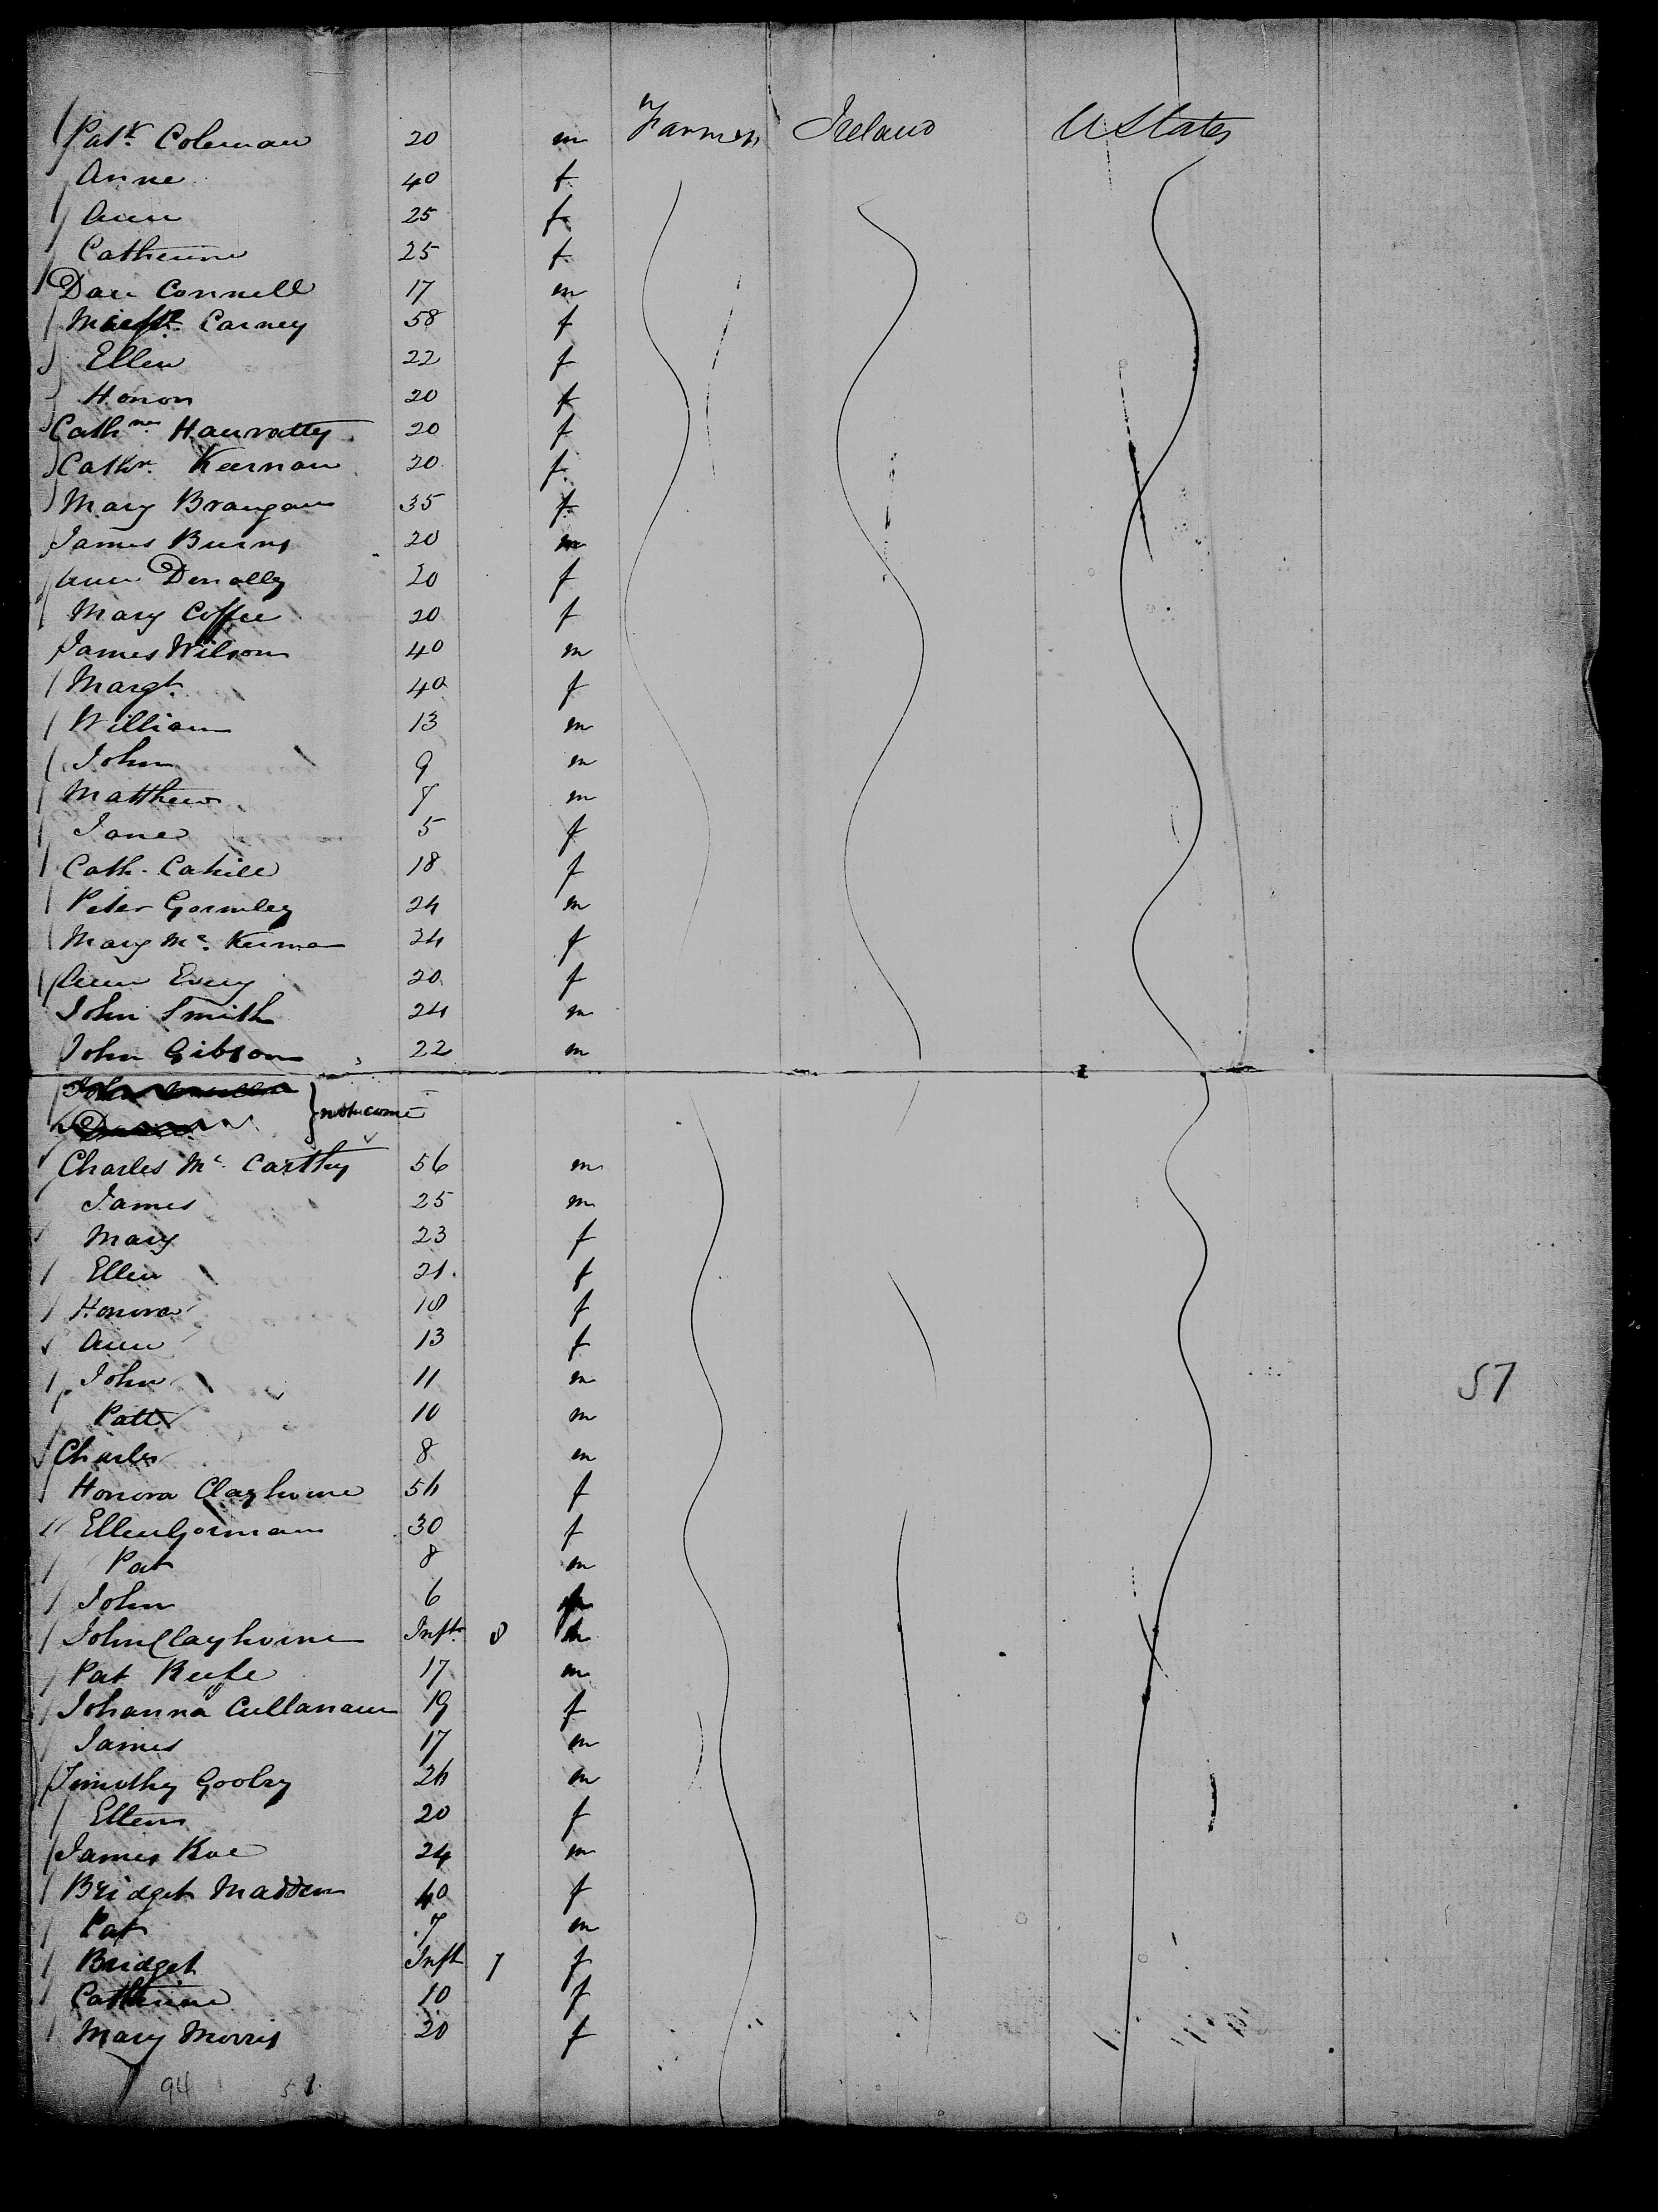 Patk. Coleman 20 m Farmer Ireland U States
Anne 40 f
Ann 25 f
Catherine 25 f
Dan Connell 17 m
Carney 58 f
Ellen 22 f
Honor 20 f
Cathne Hanratty 20 f
Cathn. Keernan 20 f
Mary Brangan 35 f
James Burns 20 m
Ann Denolly 20 f
Mary Coffee 20 f
James Wilson 40 m
Margt. 40 f
William 13 m
John 9 m
Matthew 7 m
Jane 5 f
Cath. Cahill 18 f
Peter Gormley 24 m
Mary Mc. Kerna 24 f
Ann Evey 20 f
John Smith 24 m
John Gibson 22 m
John
not come
Charles Mc. Carthy 56 m
James 25 m
Mary 23 f
Ellen 21. f
Honora 18 f
Ann 13 f
John 11 m
Patt 10 m
Charles 8 m
Honora Clayhorne 54 f
Ellen Gorman 30 f
Pat 8 m
John 6
John Clayhorne Inft. 8 m
Pat Keefe 17 m
Johanna Cullanan 19 f
James 17 m
Timothy Goolry 24 m
Ellen 20 f
James Roe 24 m
Bridget Madden 40 f
Pat 7 m
Bridget Inft 7 f
Catherine 10 f
Mary Morris 20 f
94 51
57